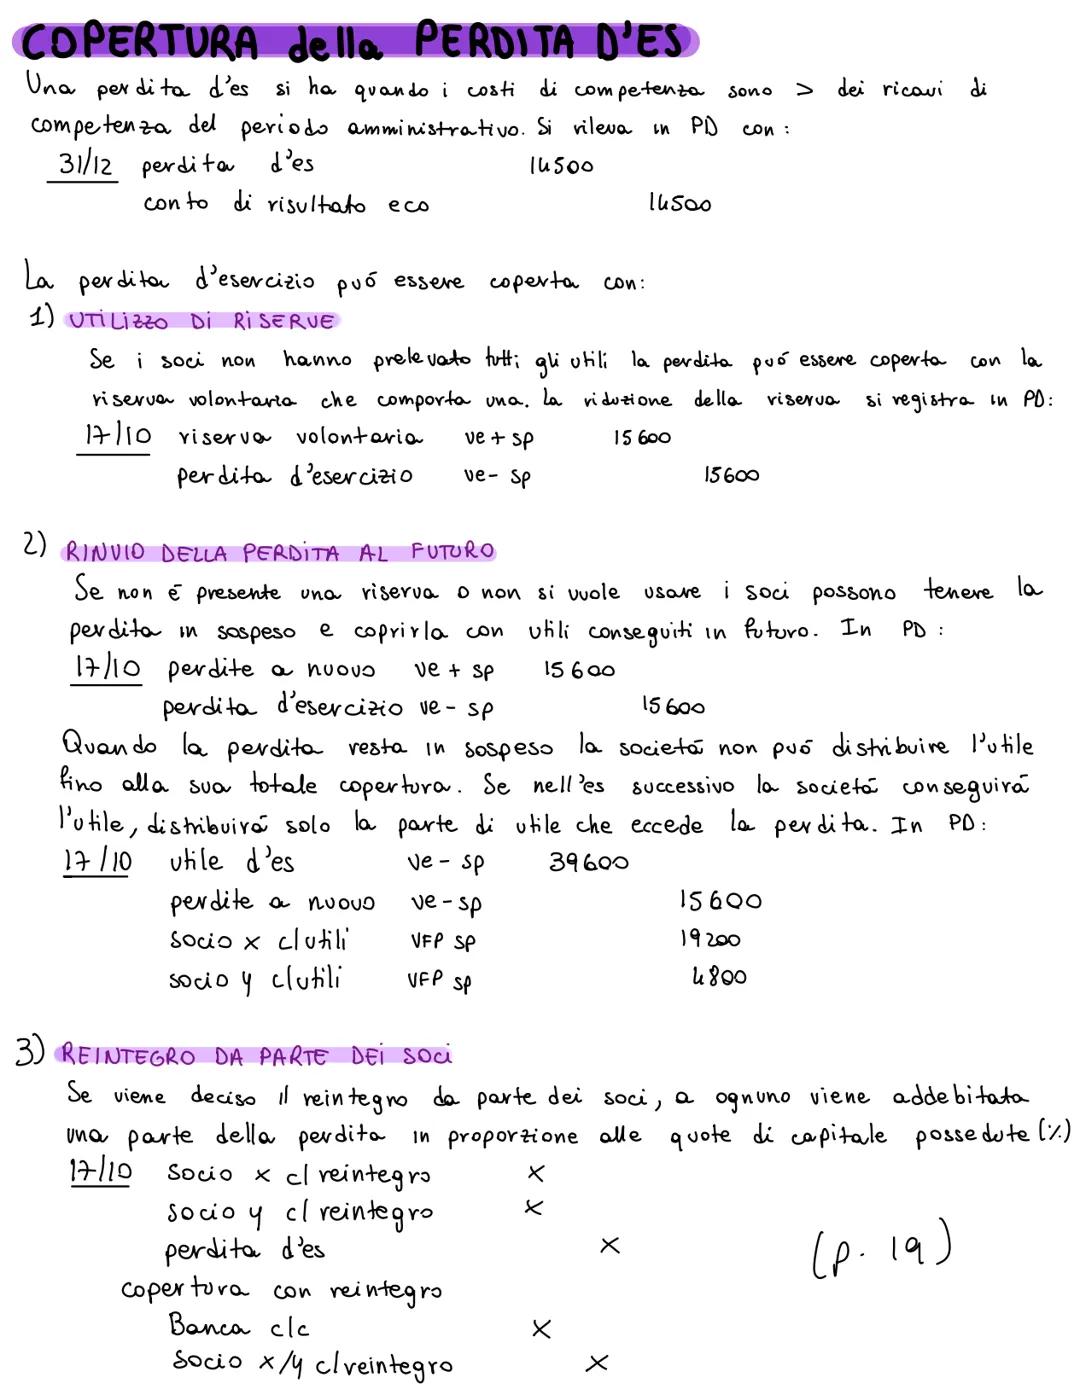 COPERTURA della PERDITA D'ES
Una perdita d'es si ha quando i costi di competenza sono > dei ricavi di
competenza del periodo amministrativo. Si rileva in PD con :
31/12 perdita d'es 14500
conto di risultato eco 14500
La perdita d'esercizio puó essere coperta con:
1) UTILIZZO Di RiSERVE
Se i soci non hanno prelevato tutti gli utili la perdita puó essere coperta con la
riserva volontaria che comporta una. La riduzione della riserva si registra in PD:
17/10 riserva volontaria ve + sp 15600
perdita d'esercizio ve - sp 15600
2) RINVIO DELLA PERDITA AL FUTURO
Se non é presente una riserva o non si vuole usare i soci possono tenere la
perdita in sospeso e coprirla con utili conseguiti in futuro. In PD :
17/10 perdite a nuovo ve + sp 15600
perdita d'esercizio ve - sp 15600
Quando la perdita resta in sospeso la societá non puó distribuire l'utile
fino alla sua totale copertura. Se nell'es successivo la societá conseguirá
l'utile, distribuirá solo la parte di utile che eccede la perdita. In PD:
17/10 utile d'es ve - sp 39600
perdite a nuovo ve - sp 15600
socio x c/utili VFP sp 19200
socio y c/utili VFP sp 4800
3) REINTEGRO DA PARTE DEi SOCi
Se viene deciso il reintegro da parte dei soci, a ognuno viene addebitata
una parte della perdita in proporzione alle quote di capitale possedute (%)
17/10 Socio x c/ reintegro X
socio y c/ reintegro X
perdita d'es X
(p. 19)
copertura con reintegro
Banca c/c X
Socio x/y c/reintegro X